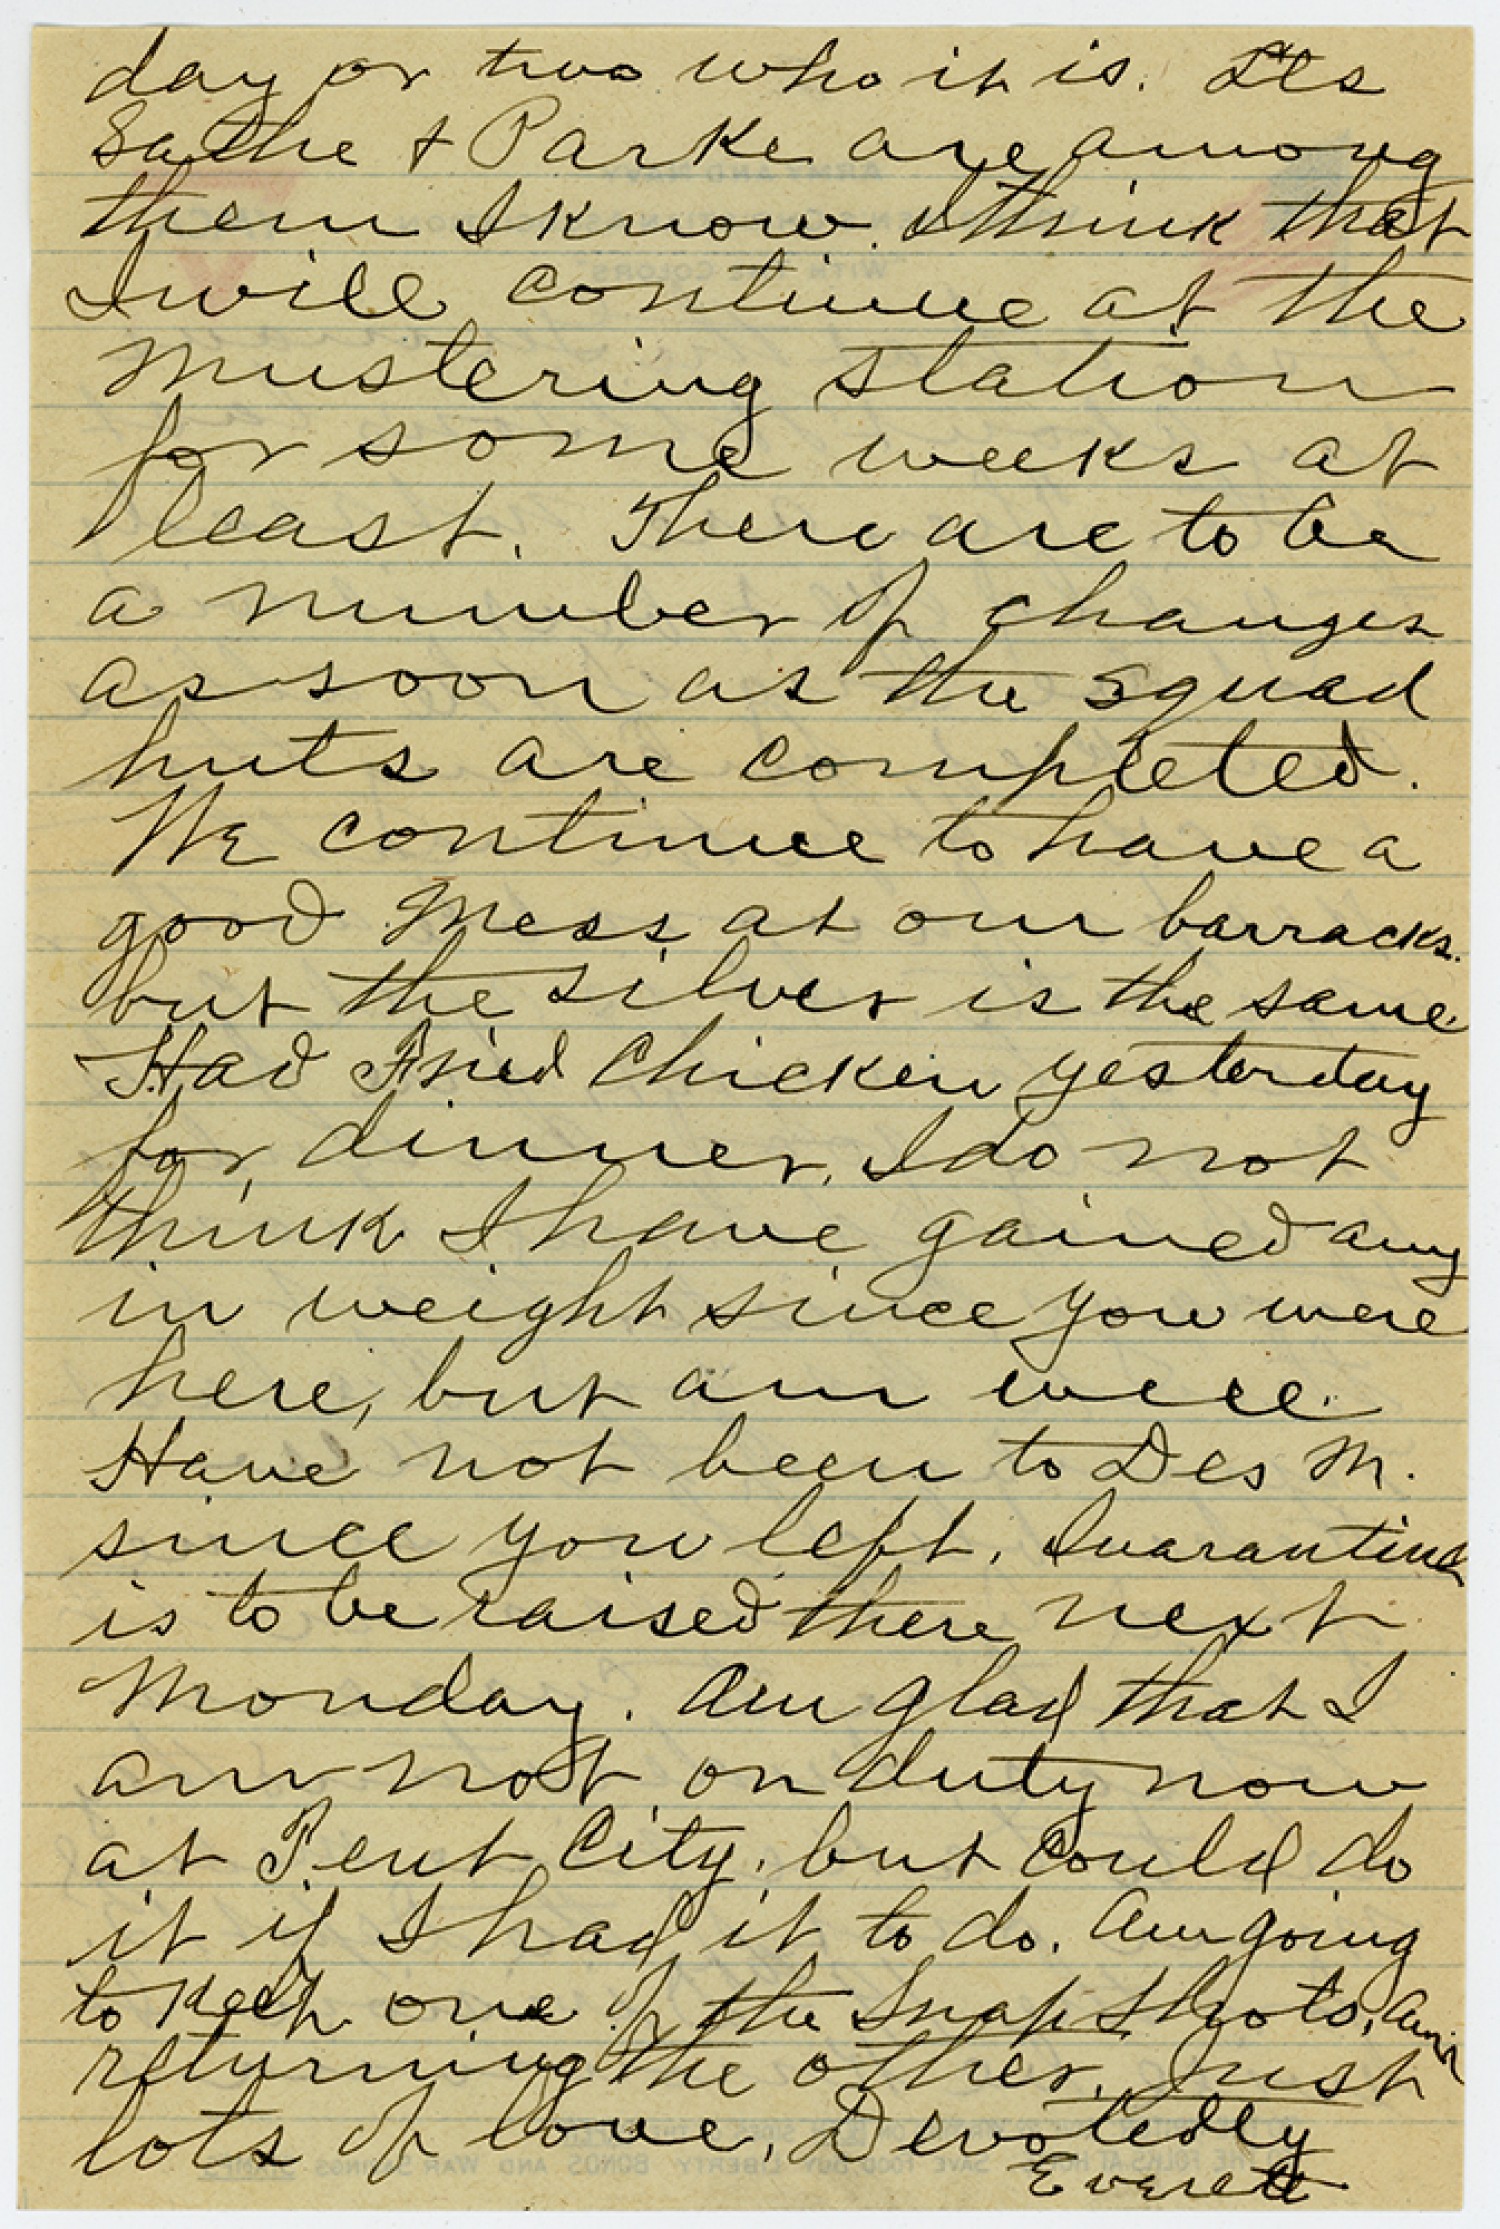 day or two who it is. Lts
Sathe & Parke are among
them I know. I think that
I will continue at the
mustering station
for some weeks at
least. There are to be
a number of changes
as soon as the squad
huts are completed.
We continue to have a
good Mess at our barracks.
but the silver is the same.
Had Fried Chicken yesterday
for dinner. I do not
think I have gained any
in weight since you were
here, but am well.
Have not been to Des M.
since you left. Quarantine
is to be raised there next
Monday. Am glad that I
am not on duty now
at Tent City, but could do
it if I had it to do. Am going
to keep one of the Snap Shots, am
returning the other. Just
lots of love, Devotedly
Everett